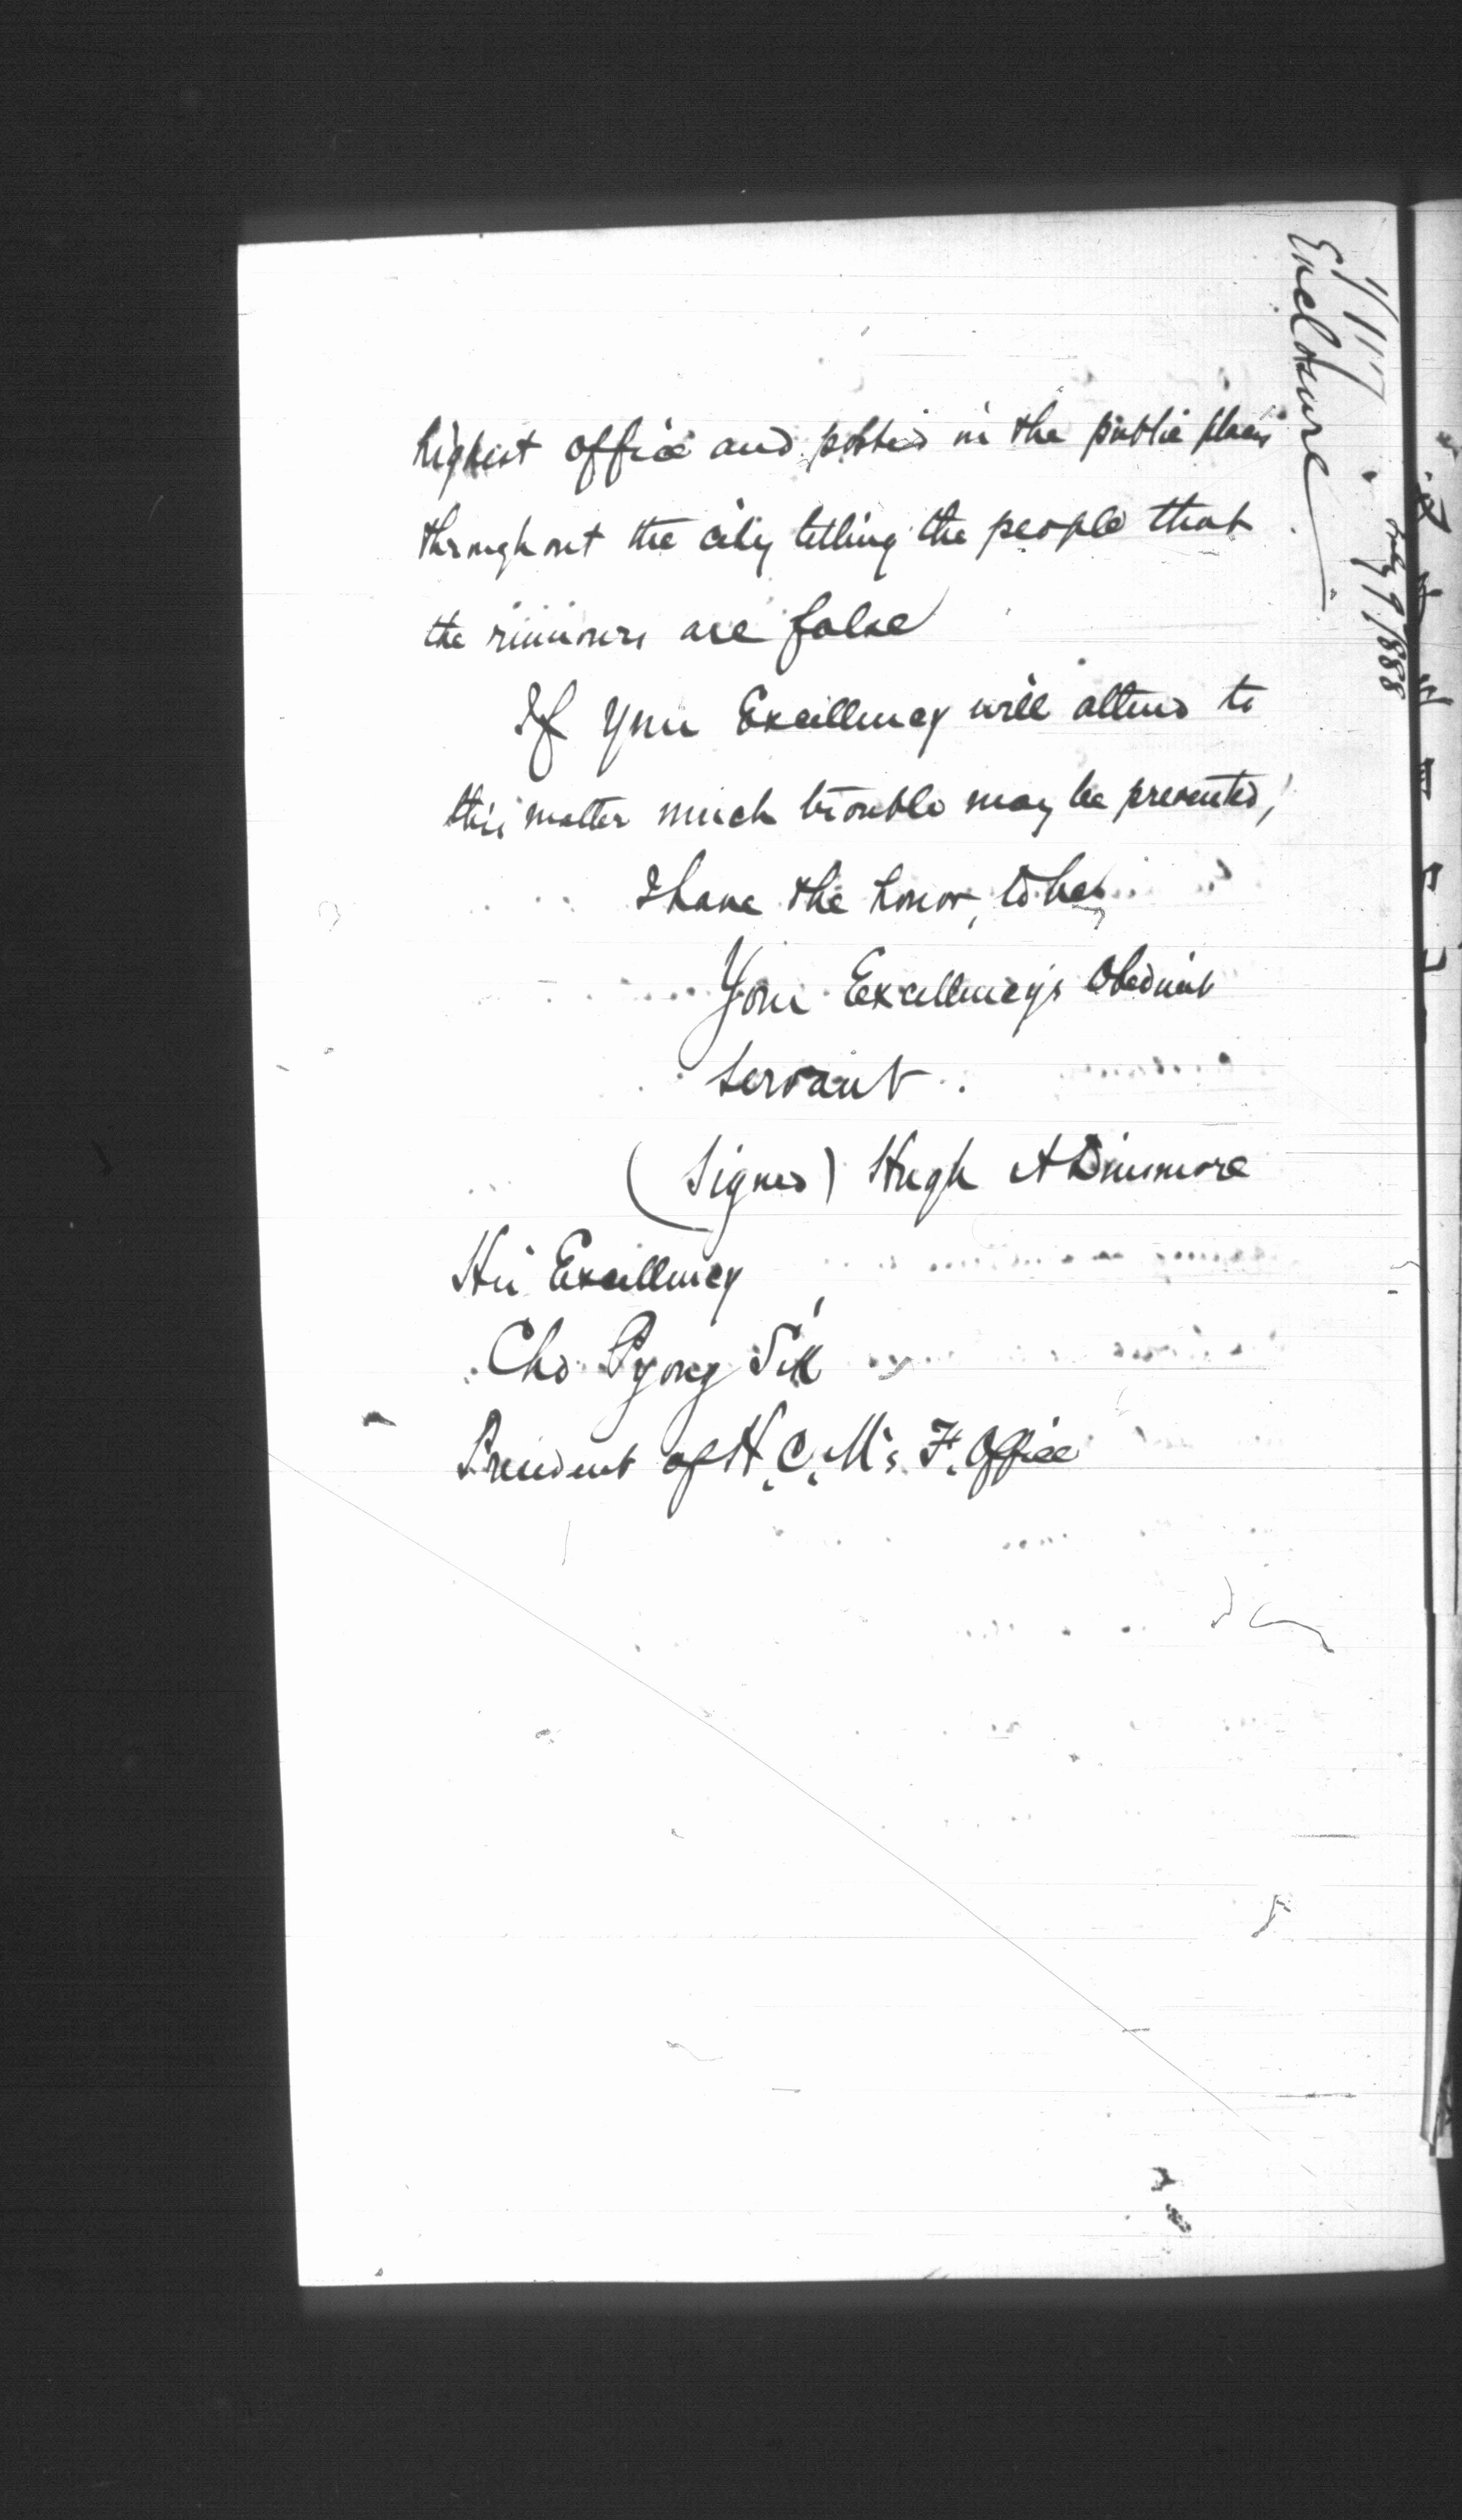 highest office and posted in the public places
throughout the city telling the people that
the rumours are false
If your Excellency will attend to
this matter much trouble may be prevented,
I have the honor, to be,
Your Excellency's Obedient
Servant.
(Signed) Hugh A Dinsmore
His Excellency
Cho Pyong Sik
President of H. C. M's. F. Office
Enclosure
July 9/1888